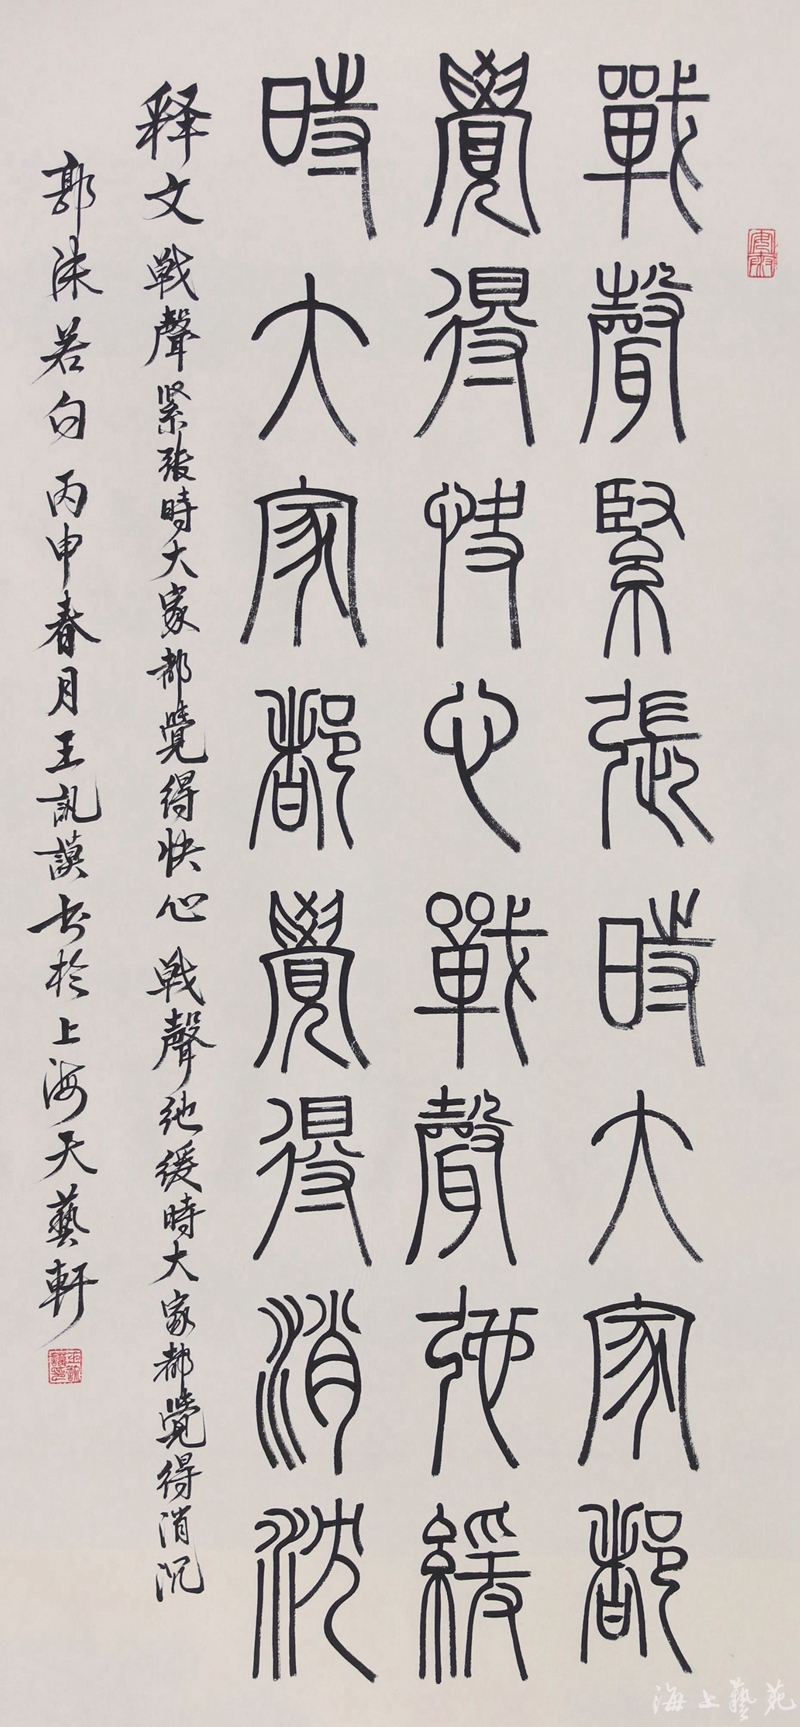 戰聲緊張時大家都
覺得快心戰聲弛緩
時大家都覺得消沈
释文 戰聲紧張時大家都覺得快心 戰聲弛緩時大家都覺得消沉
郭沫若句 丙申春月王訊謨书於上海天藝軒
海上藝苑